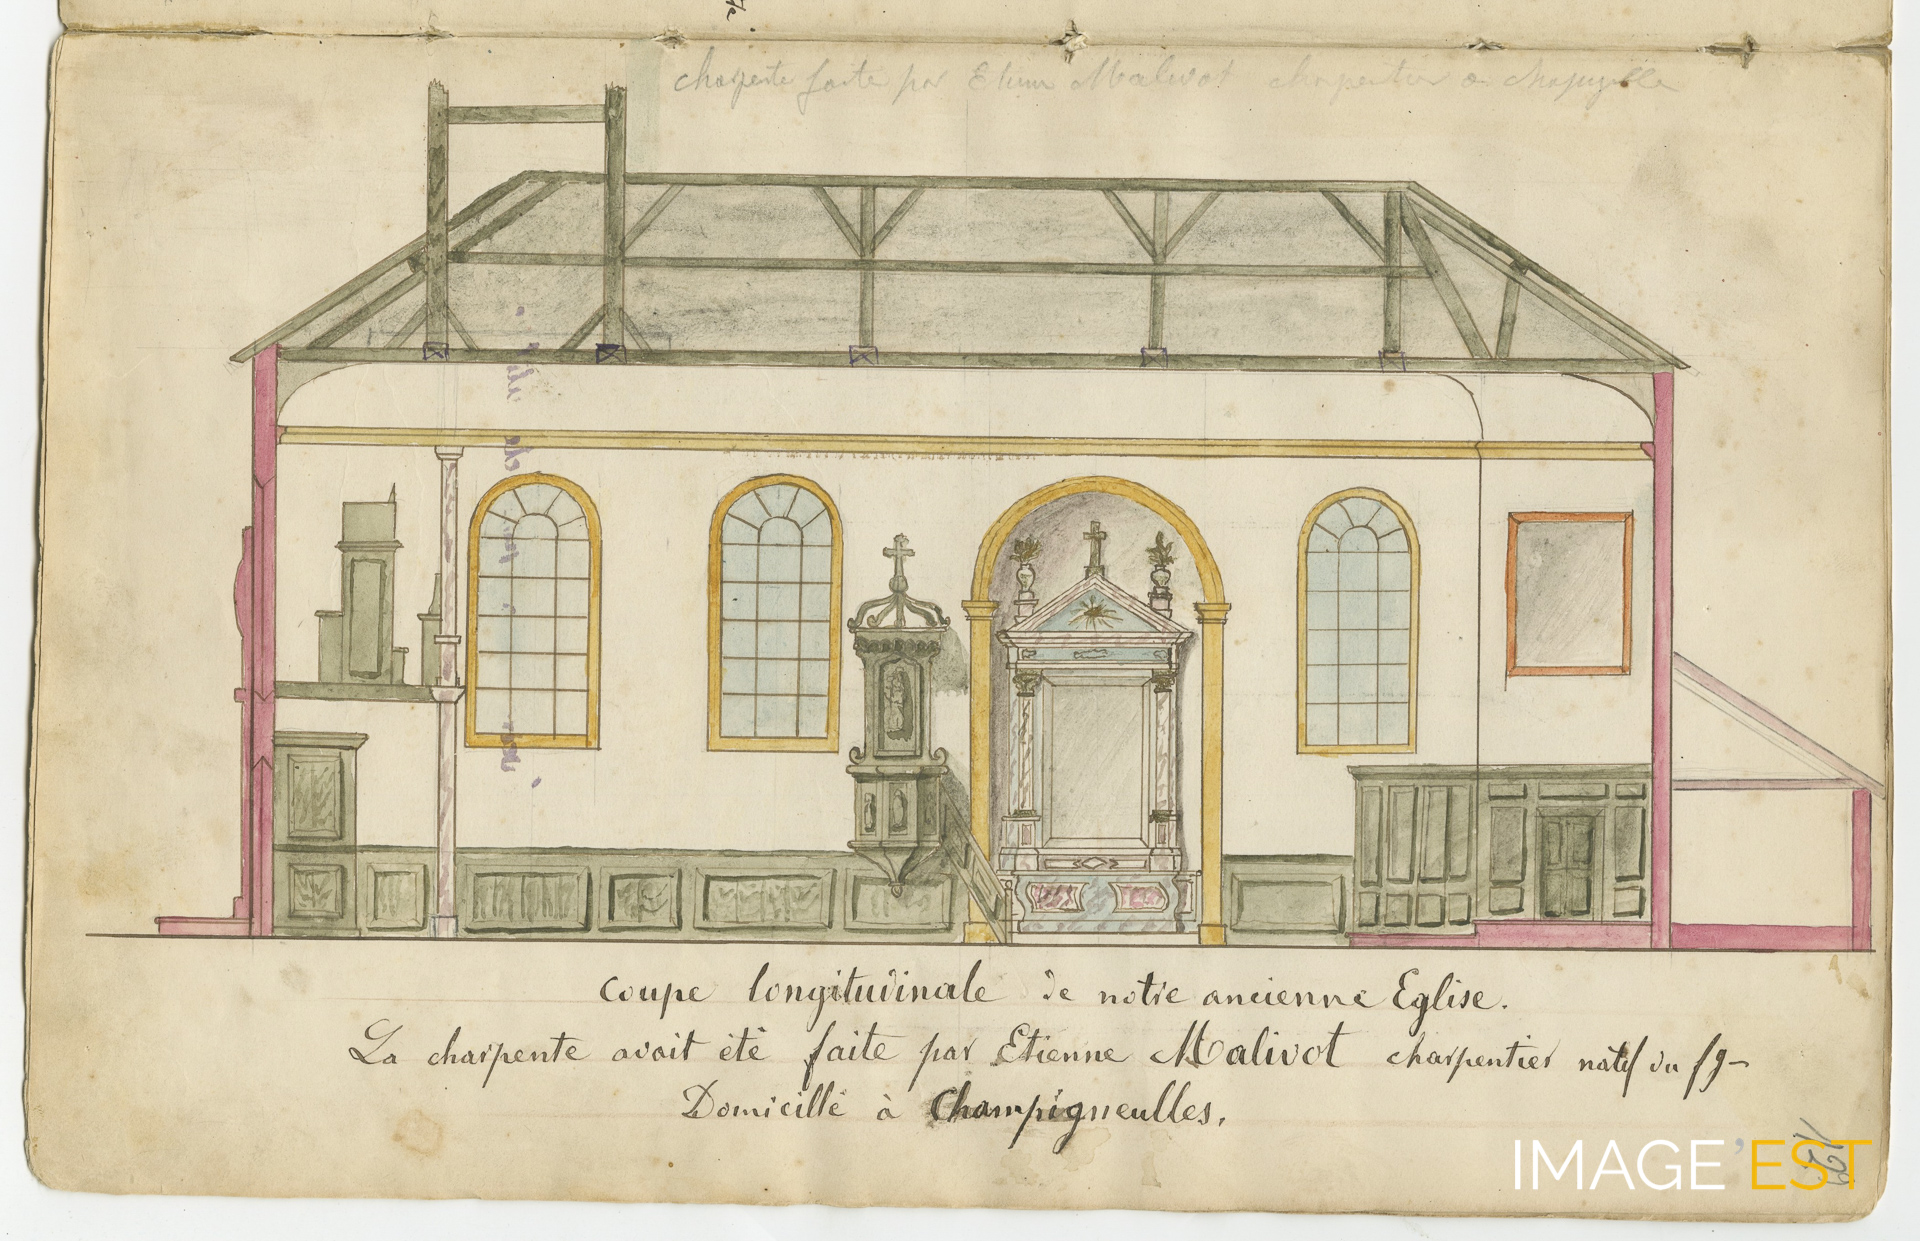 charpente faite par Etienne Malivot charpentier a
coupe longitudinale de notre ancienne Eglise.
La charpente avait été faite par Etienne Malivot charpentier natif du fg-
Domicillé à Champigneulles.
IMAGE'EST